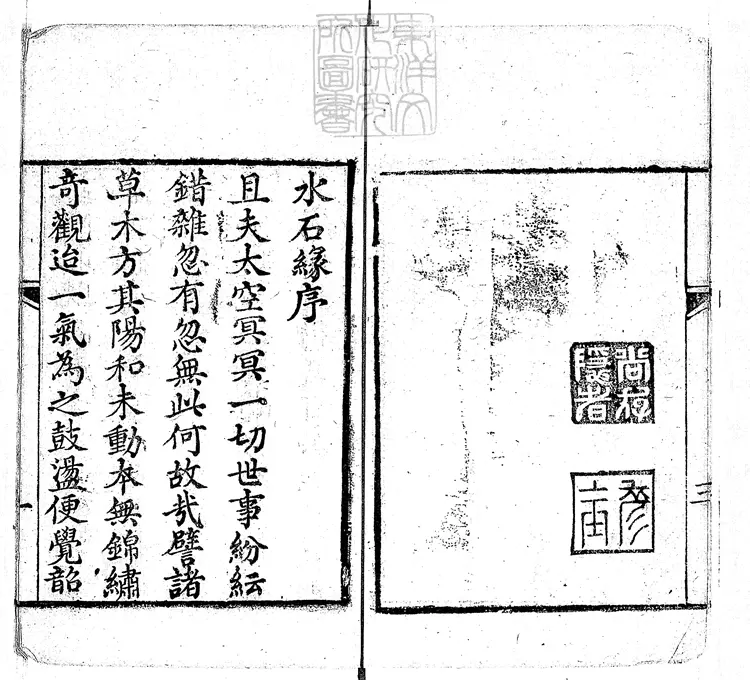 東洋文
化研究
所圖書
三
水石緣序
且夫太空冥冥一切世事紛紜
錯雜忽有忽無此何故哉譬諸
草木方其陽和未動本無錦繡
奇觀迨一氣為之鼓盪便覺韶
一